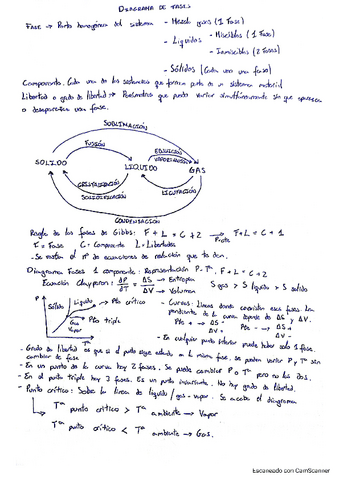 DIAGRAMA DE FASES
FASE → Parte homogénea del sistema - Mezcla gases (1 Fase)
- Líquidos - Miscibles (1 Fase)
- Inmiscibles (2 Fases)
- Sólidos (Cada uno una fase)
Componente. Cada una de las sustancias que forman parte de un sistema material
Libertad o grado de libertad → Parámetros que puedo variar simultáneamente sin que aparezca
o desaparezca una fase.
SUBLIMACIÓN
FUSIÓN
EBULLICIÓN
VAPORIZACIÓN
SOLIDO
LIQUIDO
GAS
CRISTALIZACIÓN
SOLIDIFICACIÓN
LICUACIÓN
CONDENSACIÓN
Regla de las fases de Gibbs: F + L = C + 2 → F + L = C + 1
F = Fase C = Componente L = Libertades
- Se restan el nº de ecuaciones de reacción que te den.
Diagrama Fases 1 componente: Representación P - Tª. F + L = C + 2
Ecuación Clapeyron: dP/dT = ΔS/ΔV → Entropía → Volumen S gas > S líquido > S sólido
P
Sólido
Líquido → Pto crítico
Gas
Vapor
Pto triple
T
- Curvas: Líneas donde coexisten dos fases. La
pendiente de L curva depende de ΔS y ΔV.
- En cualquier punto interior puede haber solo 1 fase.
- Grado de libertad es que si el punto sigue estando en L misma fase. Se pueden variar P y Tª sin
cambiar de fase
- En un punto de la curva hay 2 fases. Se puede cambiar P o Tª pero no las dos.
- En el punto triple hay 3 fases. Es un punto invariante. No hay grado de libertad.
- Punto crítico: Sobre la línea de líquido / gas - vapor. Se acaba el diagrama
Tª punto crítico > Tª ambiente → Vapor
Tª punto crítico < Tª ambiente → Gas.
Escaneado con CamScanner